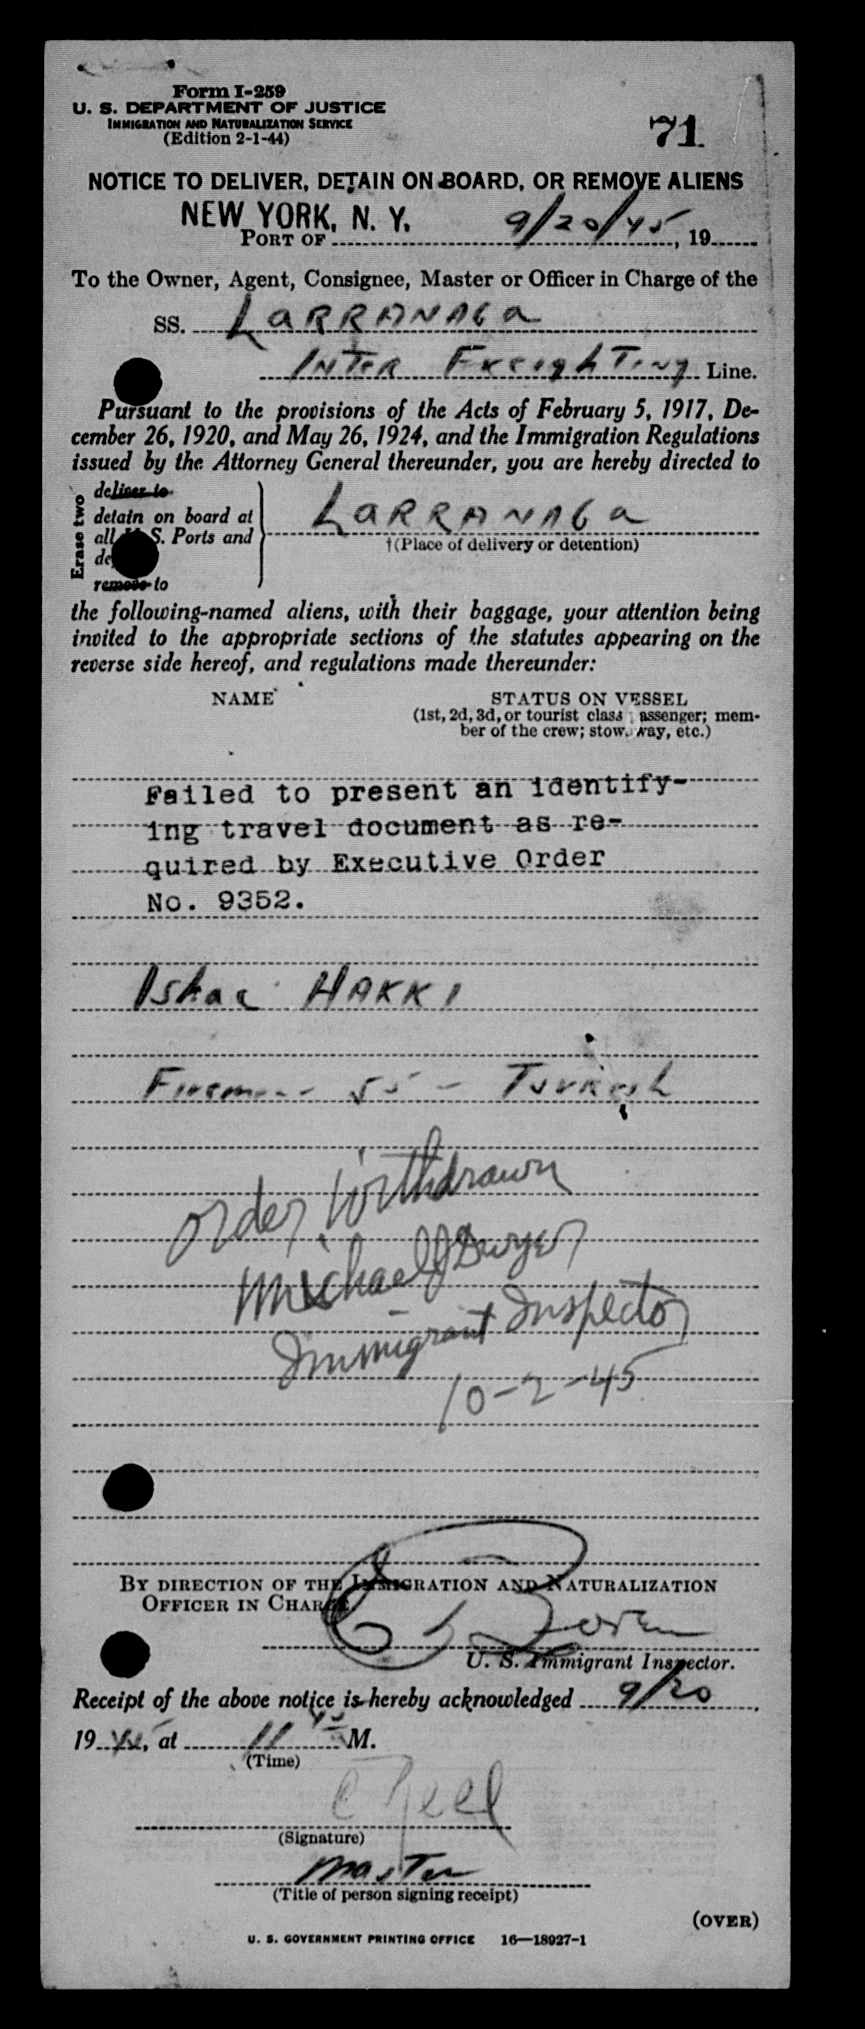 Form I-259
U. S. DEPARTMENT OF JUSTICE
IMMIGRATION AND NATURALIZATION SERVICE
(Edition 2-1-44)
71
NOTICE TO DELIVER, DETAIN ON BOARD, OR REMOVE ALIENS
NEW YORK, N. Y.
PORT OF 9/20/45, 19
To the Owner, Agent, Consignee, Master or Officer in Charge of the
SS. LARRANAGA
INTER FREIGHTING Line.
Pursuant to the provisions of the Acts of February 5, 1917, De-
cember 26, 1920, and May 26, 1924, and the Immigration Regulations
issued by the Attorney General thereunder, you are hereby directed to
Erase two
deliver to
detain on board at
all U. S. Ports and
remove to
LARRANAGA
†(Place of delivery or detention)
the following-named aliens, with their baggage, your attention being
invited to the appropriate sections of the statutes appearing on the
reverse side hereof, and regulations made thereunder:
NAME STATUS ON VESSEL
(1st, 2d, 3d, or tourist class passenger; mem-
ber of the crew; stowaway, etc.)
Failed to present an identify-
ing travel document as re-
quired by Executive Order
No. 9352.
Ishac HAKKI
Fireman 55 - Turkish
Order Withdrawn
Michael J Dwyer
Immigrant Inspector
10-2-45
BY DIRECTION OF THE IMMIGRATION AND NATURALIZATION
OFFICER IN CHARGE
U. S. Immigrant Inspector.
Receipt of the above notice is hereby acknowledged 9/20,
19 45, at 11 45 M.
(Time)
(Signature)
Master
(Title of person signing receipt)
(OVER)
U. S. GOVERNMENT PRINTING OFFICE 16—18927-1